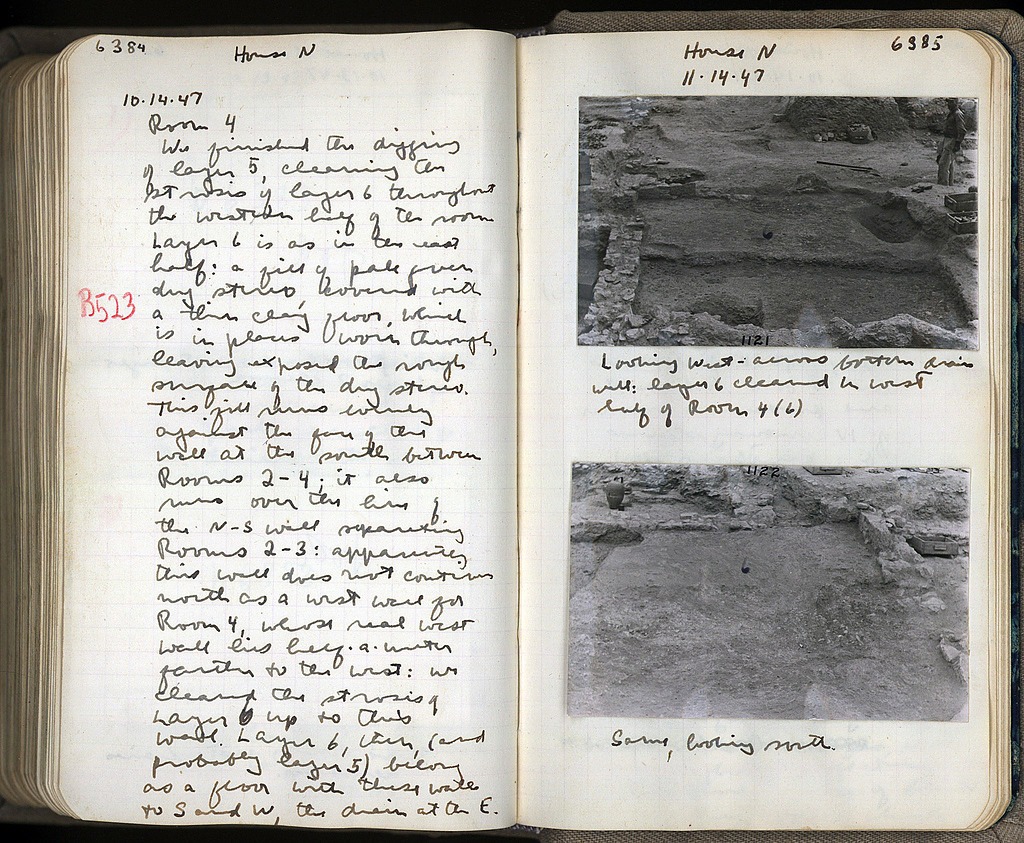 6384
House N
10.14.47
Room 4
We finished the digging
of layer 5, cleaning the
strosis of layer 6 throughout
the western half of the room
Layer 6 is as in the east
half: a fill of pale green
dry stereo, covered with
B523
a thin clay floor, which
is in places worn through,
leaving exposed the rough
surface of the dry stereo.
This fill runs evenly
against the face of the
wall at the south between
Rooms 2-4; it also
runs over the line of
the N-S wall separating
Rooms 2-3: apparently
this wall does not continue
north as a west wall for
Room 4, whose real west
wall lies half-a-meter
farther to the west: we
cleared the strosis of
Layer 6 up to this
wall. Layer 6, then, (and
probably layer 5) belong
as a floor with these walls
to S and W, the drain at the E.
House N
6385
11.14.47
1121
Looking West - across bottom drain
wall: layer 6 cleared in west
half of Room 4 (6)
1122
Same, looking south.